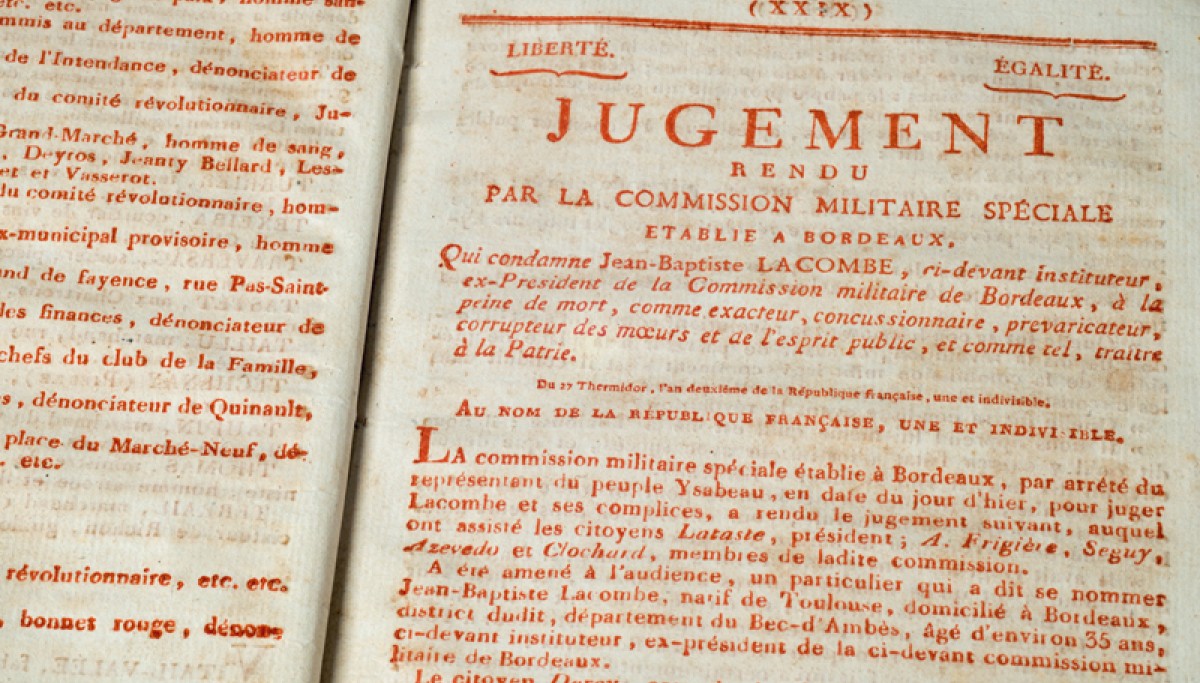 etc. etc.
mmis au département, homme de
de l'Intendance, dénonciateur de
du comité révolutionnaire, Ju-
Grand-Marché, homme de sang,
, Deyros, Jeanty Bellard, Les-
et et Vasserot.
du comité révolutionnaire, hom-
x-municipal provisoire, homme
and de fayence, rue Pas-Saint-
des finances, dénonciateur de
chefs du club de la Famille,
s, dénonciateur de Quinault,
place du Marché-Neuf, dé-
. etc.
révolutionnaire, etc. etc.
, bonnet rouge, dénon-
LIBERTÉ.
ÉGALITÉ.
JUGEMENT
RENDU
PAR LA COMMISSION MILITAIRE SPÉCIALE
ETABLIE A BORDEAUX,
Qui condamne Jean-Baptiste LACOMBE, ci-devant instituteur,
ex-Président de la Commission militaire de Bordeaux, à la
peine de mort, comme exacteur, concussionnaire, prevaricateur,
corrupteur des mœurs et de l'esprit public, et comme tel, traitre
à la Patrie.
Du 27 Thermidor, l'an deuxiéme de la République française, une et indivisible.
AU NOM DE LA RÉPUBLIQUE FRANÇAISE, UNE ET INDIVISIBLE.
LA commission militaire spéciale établie à Bordeaux, par arrété du
représentant du peuple Ysabeau, en date du jour d'hier, pour juger
Lacombe et ses complices, a rendu le jugement suivant, auquel
ont assisté les citoyens Lataste, président; A. Frigière, Seguy,
Azevedo et Clochard, membres de ladite commission.
A été amené à l'audience, un particulier qui a dit se nommer
Jean-Baptiste Lacombe, natif de Toulouse, domicilié à Bordeaux,
district dudit, département du Bec-d'Ambès, âgé d'environ 35 ans,
ci-devant instituteur, ex-président de la ci-devant commission mi-
litaire de Bordeaux.
Le citoyen